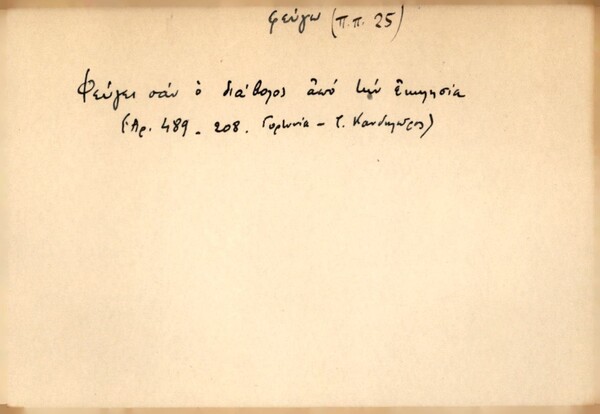 φεύγω (π.π. 25)
Φεύγει σάν ὁ διάβολος ἀπό τήν ἐκκλησία
(Ἀρ. 489 - 208. Γορτυνία - Τ. Κανδηλῶρος)